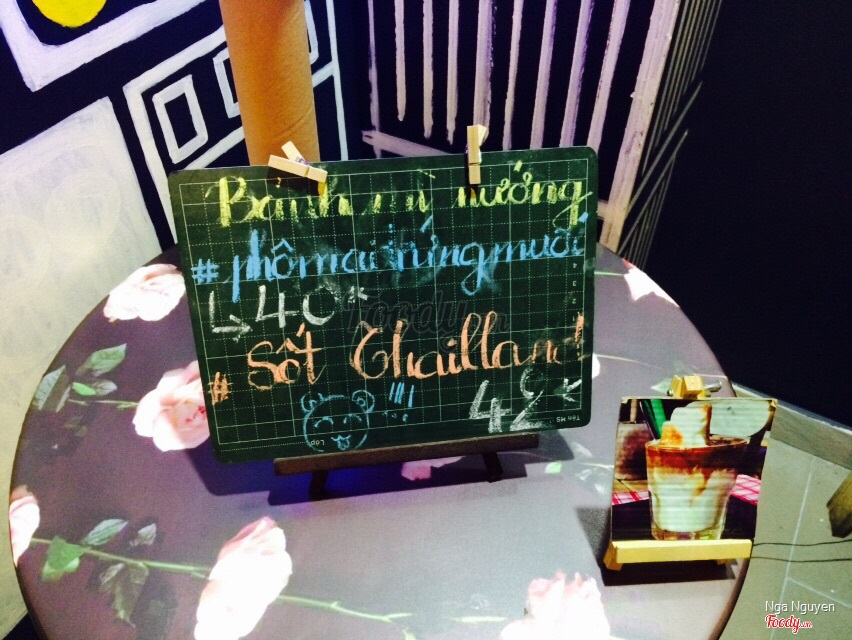 Bánh mì nướng
# phômai trứng muối
↳ 40K
# Sốt Thailland !!!
42K
Foody.vn
Nga Nguyen
Foody.vn